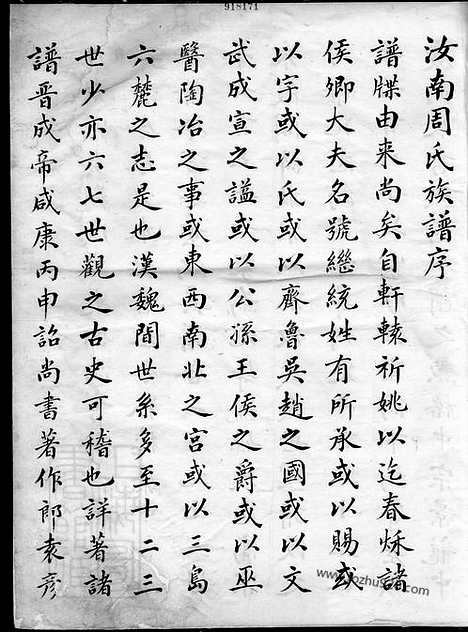 918171
汝南周氏族譜序
譜牒由来尚矣自軒轅祈姚以迄春秌諸
侯卿大夫名號繼統姓有所承或以賜或
以字或以氏或以齊魯吳趙之國或以文
武成宣之謚或以公孫王侯之爵或以巫
醫陶冶之事或東西南北之宮或以三島
六麓之志是也漢魏間世系多至十二三
世少亦六七世觀之古史可稽也詳著諸
譜晋成帝咸康丙申詔尚書著作郎袁彦